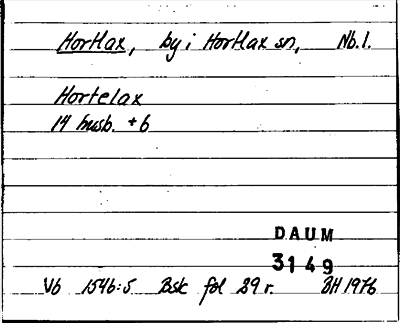 Hortlax, by i Hortlax sn, Nb.l.
Hortelax
14 husb. + 6
DAUM
3149
Vb 1546:5 Bsk fol 29 r. BH 1976